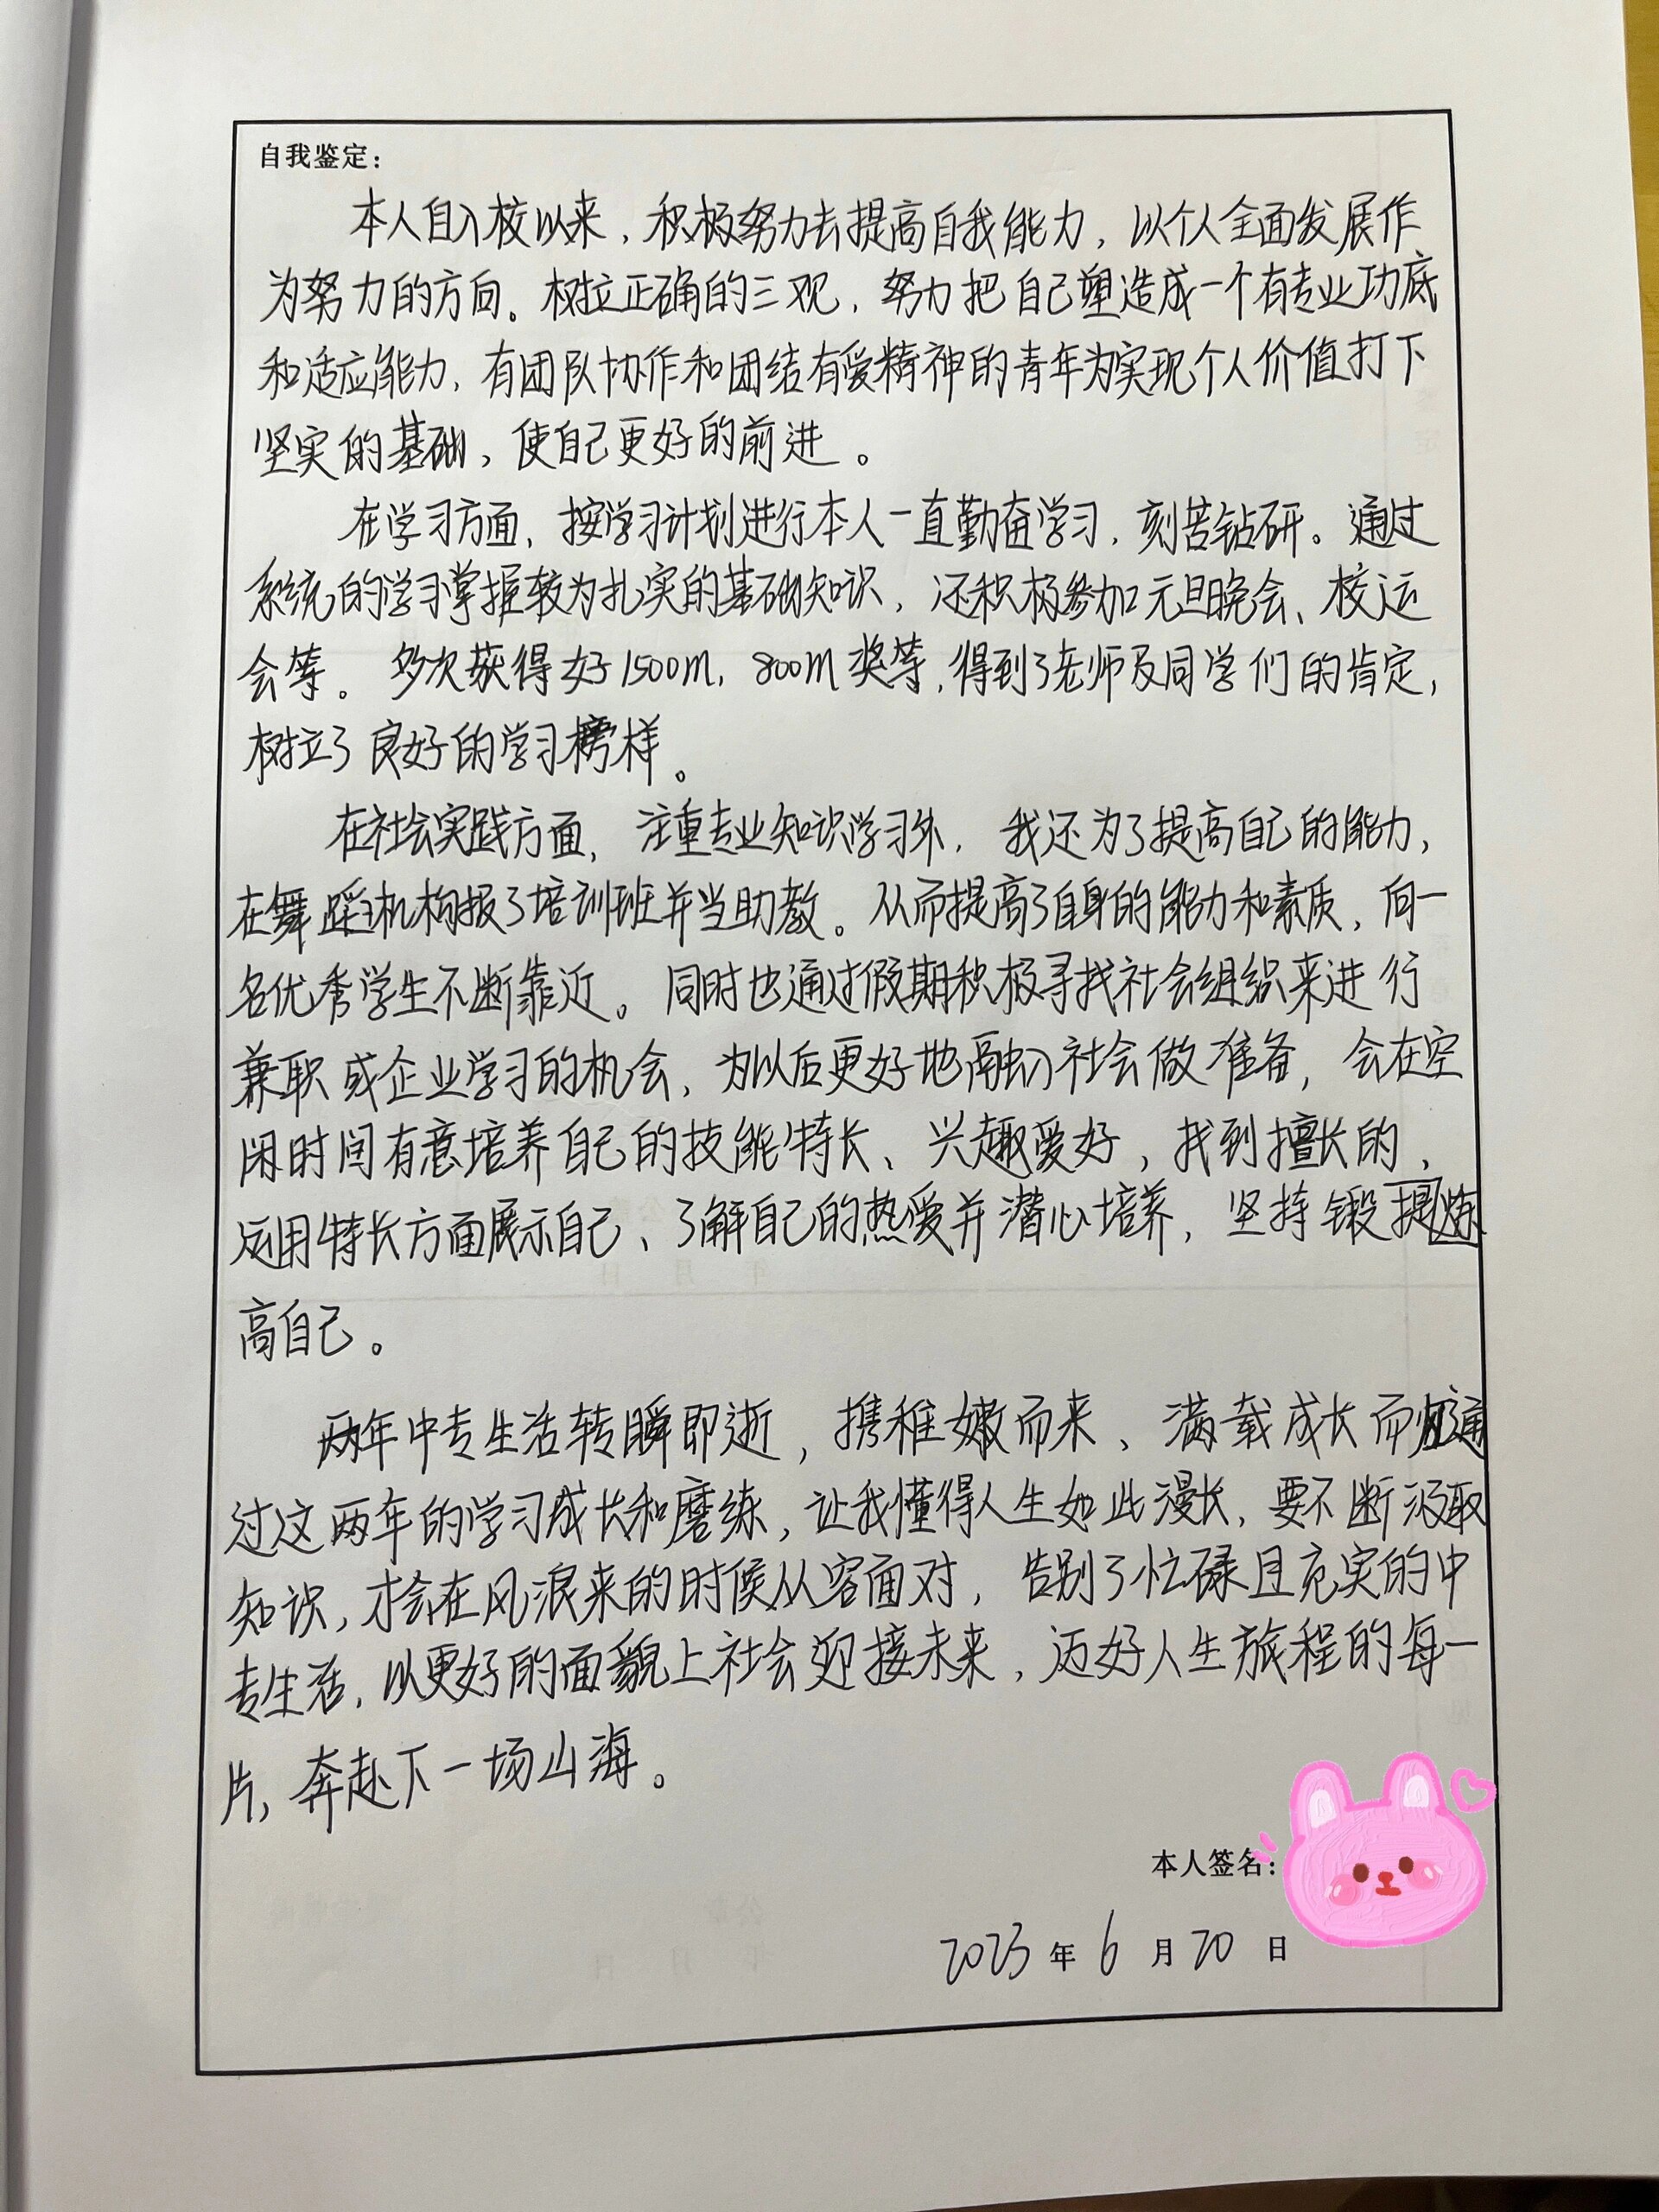 自我鉴定：
本人自入校以来，积极努力去提高自我能力，以个人全面发展作
为努力的方向。树立正确的三观，努力把自己塑造成一个有专业功底
和适应能力，有团队协作和团结有爱精神的青年为实现个人价值打下
坚实的基础，使自己更好的前进。
在学习方面，按学习计划进行本人一直勤奋学习，刻苦钻研。通过
系统的学习掌握较为扎实的基础知识，还积极参加元旦晚会、校运
会等。多次获得好1500m，800m奖等，得到了老师及同学们的肯定，
树立了良好的学习榜样。
在社会实践方面，注重专业知识学习外，我还为了提高自己的能力，
在舞蹈机构报了培训班并当助教。从而提高了自身的能力和素质，向一
名优秀学生不断靠近。同时也通过假期积极寻找社会组织来进行
兼职或企业学习的机会，为以后更好地融入社会做准备，会在空
闲时间有意培养自己的技能特长、兴趣爱好，找到擅长的，
运用特长方面展示自己、了解自己的热爱并潜心培养，坚持锻炼提
高自己。
两年中专生活转瞬即逝，携稚嫩而来、满载成长而归通
过这两年的学习成长和磨练，让我懂得人生如此漫长，要不断汲取
知识，才会在风浪来的时候从容面对，告别了忙碌且充实的中
专生活，以更好的面貌上社会迎接未来，迈好人生旅程的每一
片，奔赴下一场山海。
本人签名：
2023年6月20日